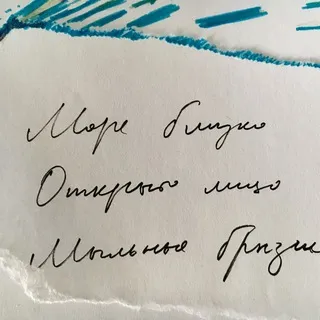 Море близко
Открыто лицо
Мыльные брызги